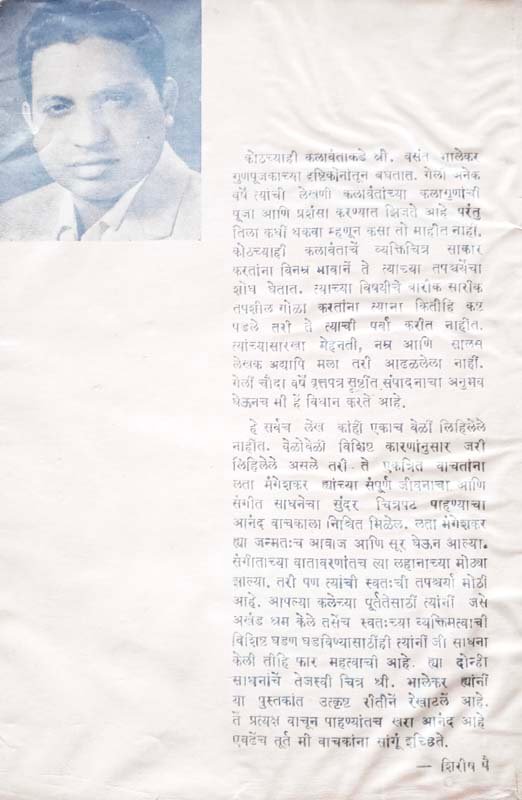 कोठच्याही कलावंताकडे श्री. वसंत भालेकर
गुणपूजकाच्या दृष्टिकोनांतून बघतात. गेलीं अनेक
वर्षे त्यांची लेखणी कलावंतांच्या कलागुणांची
पूजा आणि प्रशंसा करण्यात झिजते आहे परंतु
तिला कधीं थकवा म्हणून कसा तो माहीत नाही.
कोठच्याही कलावंताचें व्यक्तिचित्र साकार
करतांना विनम्र भावानें ते त्याच्या तपश्चर्येचा
शोध घेतात. त्याच्या विषयीचे बारीक सारीक
तपशील गोळा करतांना त्यांना कितीहि कष्ट
पडले तरी ते त्याची पर्वा करीत नाहींत.
त्यांच्यासारखा मेहनती, नम्र आणि सालस
लेखक अद्यापि मला तरी आढळलेला नाहीं.
गेलीं चौदा वर्षे वृत्तपत्र सृष्टींत संपादनाचा अनुभव
घेऊनच मी हें विधान करते आहे.
हे सर्वच लेख कांही एकाच वेळीं लिहिलेले
नाहींत. वेळोवेळी विशिष्ट कारणांनुसार जरी
लिहिलेले असले तरी ते एकत्रित वाचतांना
लता मंगेशकर ह्यांच्या संपूर्ण जीवनाचा आणि
संगीत साधनेचा सुंदर चित्रपट पाहण्याचा
आनंद वाचकाला निश्चित मिळेल. लता मंगेशकर
ह्या जन्मतःच आवाज आणि सूर घेऊन आल्या.
संगीताच्या वातावरणांतच त्या लहानाच्या मोठ्या
झाल्या. तरी पण त्यांची स्वतःची तपश्चर्या मोठी
आहे. आपल्या कलेच्या पूर्ततेसाठीं त्यांनीं जसे
अखंड श्रम केले तसेंच स्वतःच्या व्यक्तिमत्वाची
विशिष्ट घडण घडविण्यासाठींही त्यांनीं जी साधना
केली तीहि फार महत्वाची आहे. ह्या दोन्ही
साधनांचें तेजस्वी चित्र श्री. भालेकर ह्यांनीं
या पुस्तकांत उत्कृष्ट रीतीनें रेखाटलें आहे.
तें प्रत्यक्ष वाचून पाहण्यांतच खरा आनंद आहे
एवढेंच तूर्त मी वाचकांना सांगूं इच्छिते.
— शिरीष पै